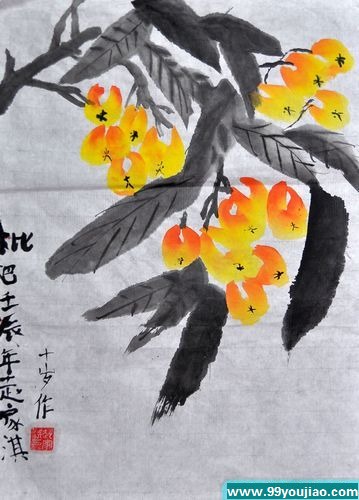 枇巴壬辰年赵家淇
十岁作
www.99youjiao.com